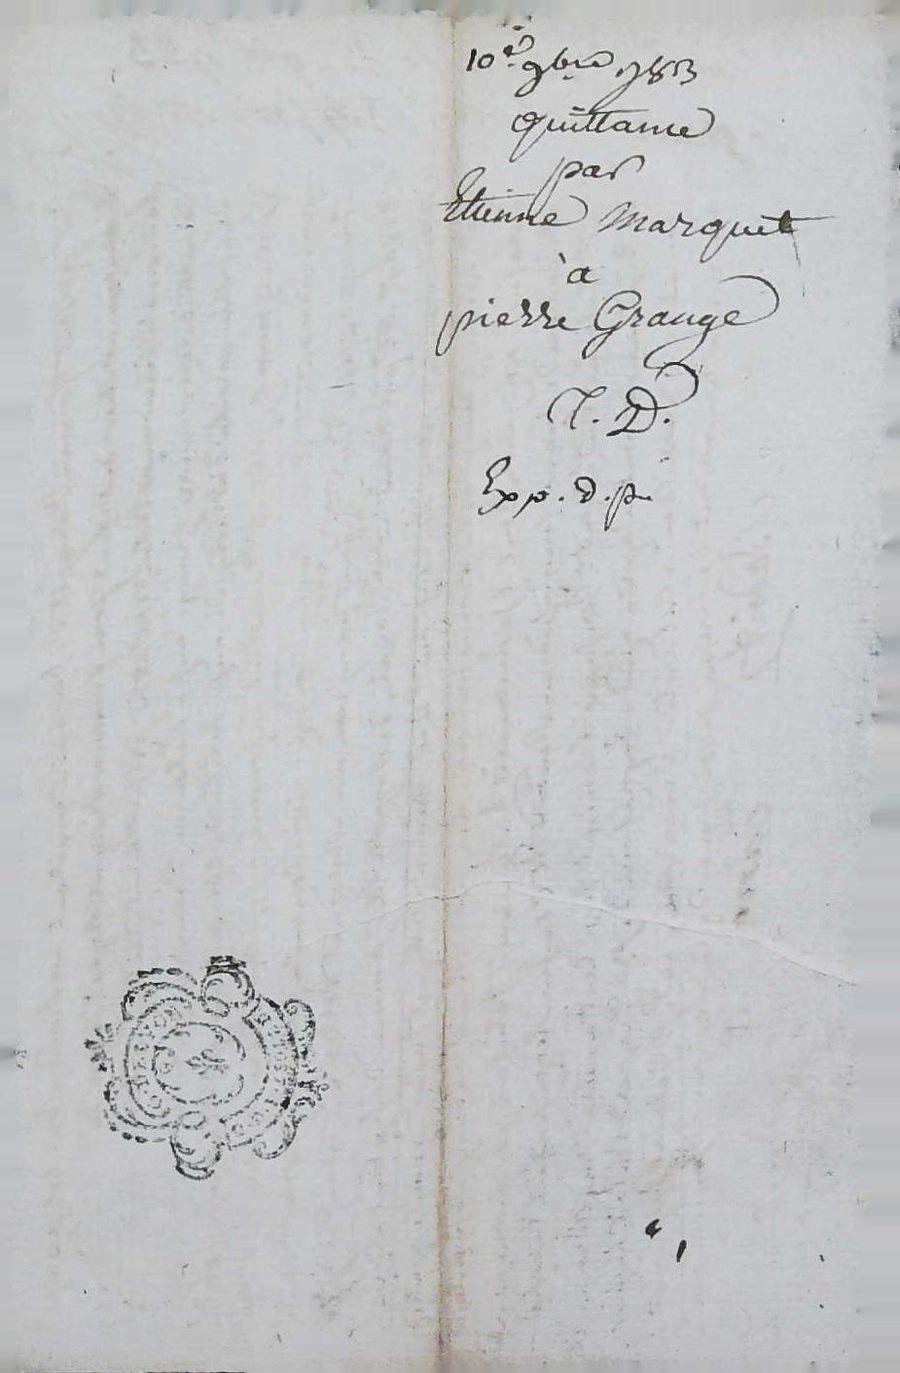 10e. 9bre 783
quittance
par
Etienne Marquet
à
pierre Grange
T. D.
Exp. d. p.